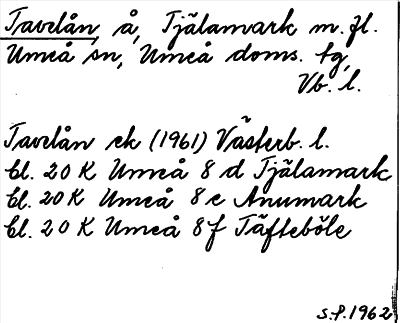 Tavelån, å, Tjälamark m.fl.
Umeå sn, Umeå doms. tg,
Vb. l.
Tavelån ek (1961) Västerb. l.
bl. 20 K Umeå 8 d Tjälamark
bl. 20K Umeå 8 e Anumark
bl. 20 K Umeå 8 f Täfteböle
S.P. 1962